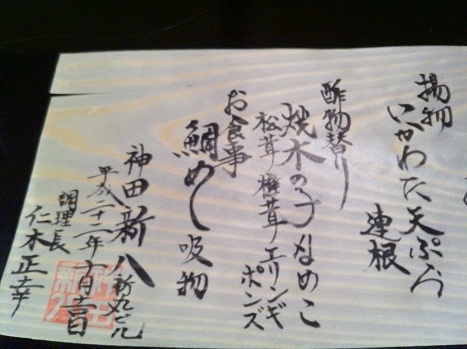 揚物
いかわた天ぷら
連根
酢物替り
焼木の子なめこ
松茸椎茸エリンギ
ポンズ
お食事
鯛めし吸物
神田新八新丸ビル
平成二十二年十月
調理長
仁木正幸